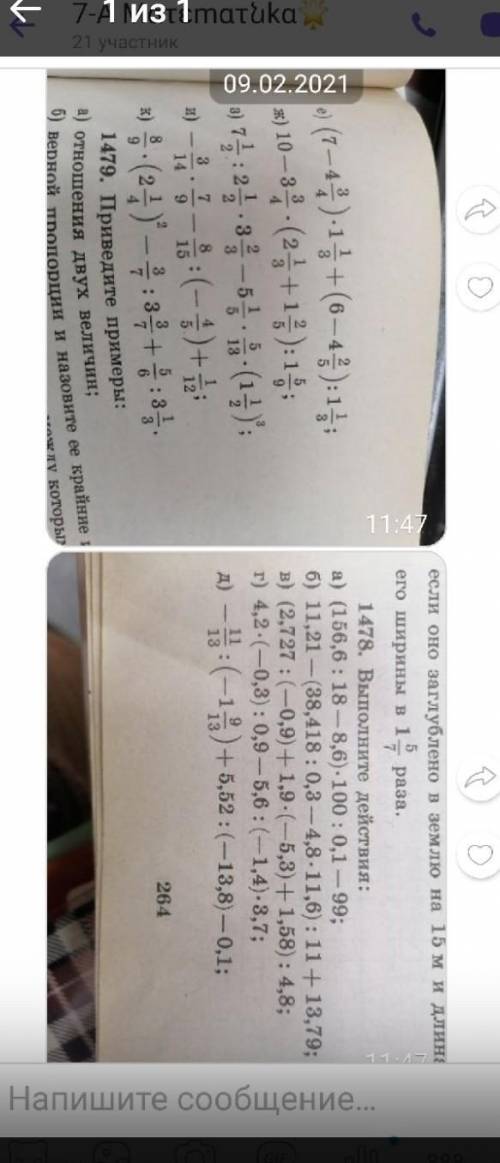 7-А Математика
1 из 1
21 участник
09.02.2021
е) (7 − 4 3/4) · 1 1/3 + (6 − 4 2/5) : 1 1/3;
ж) 10 − 3 3/4 · (2 1/3 + 1 2/5) : 1 5/9;
з) 7 1/2 : 2 1/2 · 3 2/3 − 5 1/5 · 5/13 · (1 1/2)³;
и) − 3/14 · 7/9 − 8/15 : (− 4/5) + 1/12;
к) 8/9 · (2 1/4)² − 3/7 : 3 3/7 + 5/6 : 3 1/3.
1479. Приведите примеры:
а) отношения двух величин;
б) верной пропорции и назовите ее крайние
между которы
11:47
если оно заглублено в землю на 15 м и длина
его ширины в 1 5/7 раза.
1478. Выполните действия:
а) (156,6 : 18 − 8,6) · 100 : 0,1 − 99;
б) 11,21 − (38,418 : 0,3 − 4,8 · 11,6) : 11 + 13,79;
в) (2,727 : (−0,9) + 1,9 · (−5,3) + 1,58) : 4,8;
г) 4,2 · (−0,3) : 0,9 − 5,6 : (−1,4) · 3,7;
д) − 11/13 : (−1 9/13) + 5,52 : (−13,8) − 0,1;
264
11:47
Напишите сообщение...